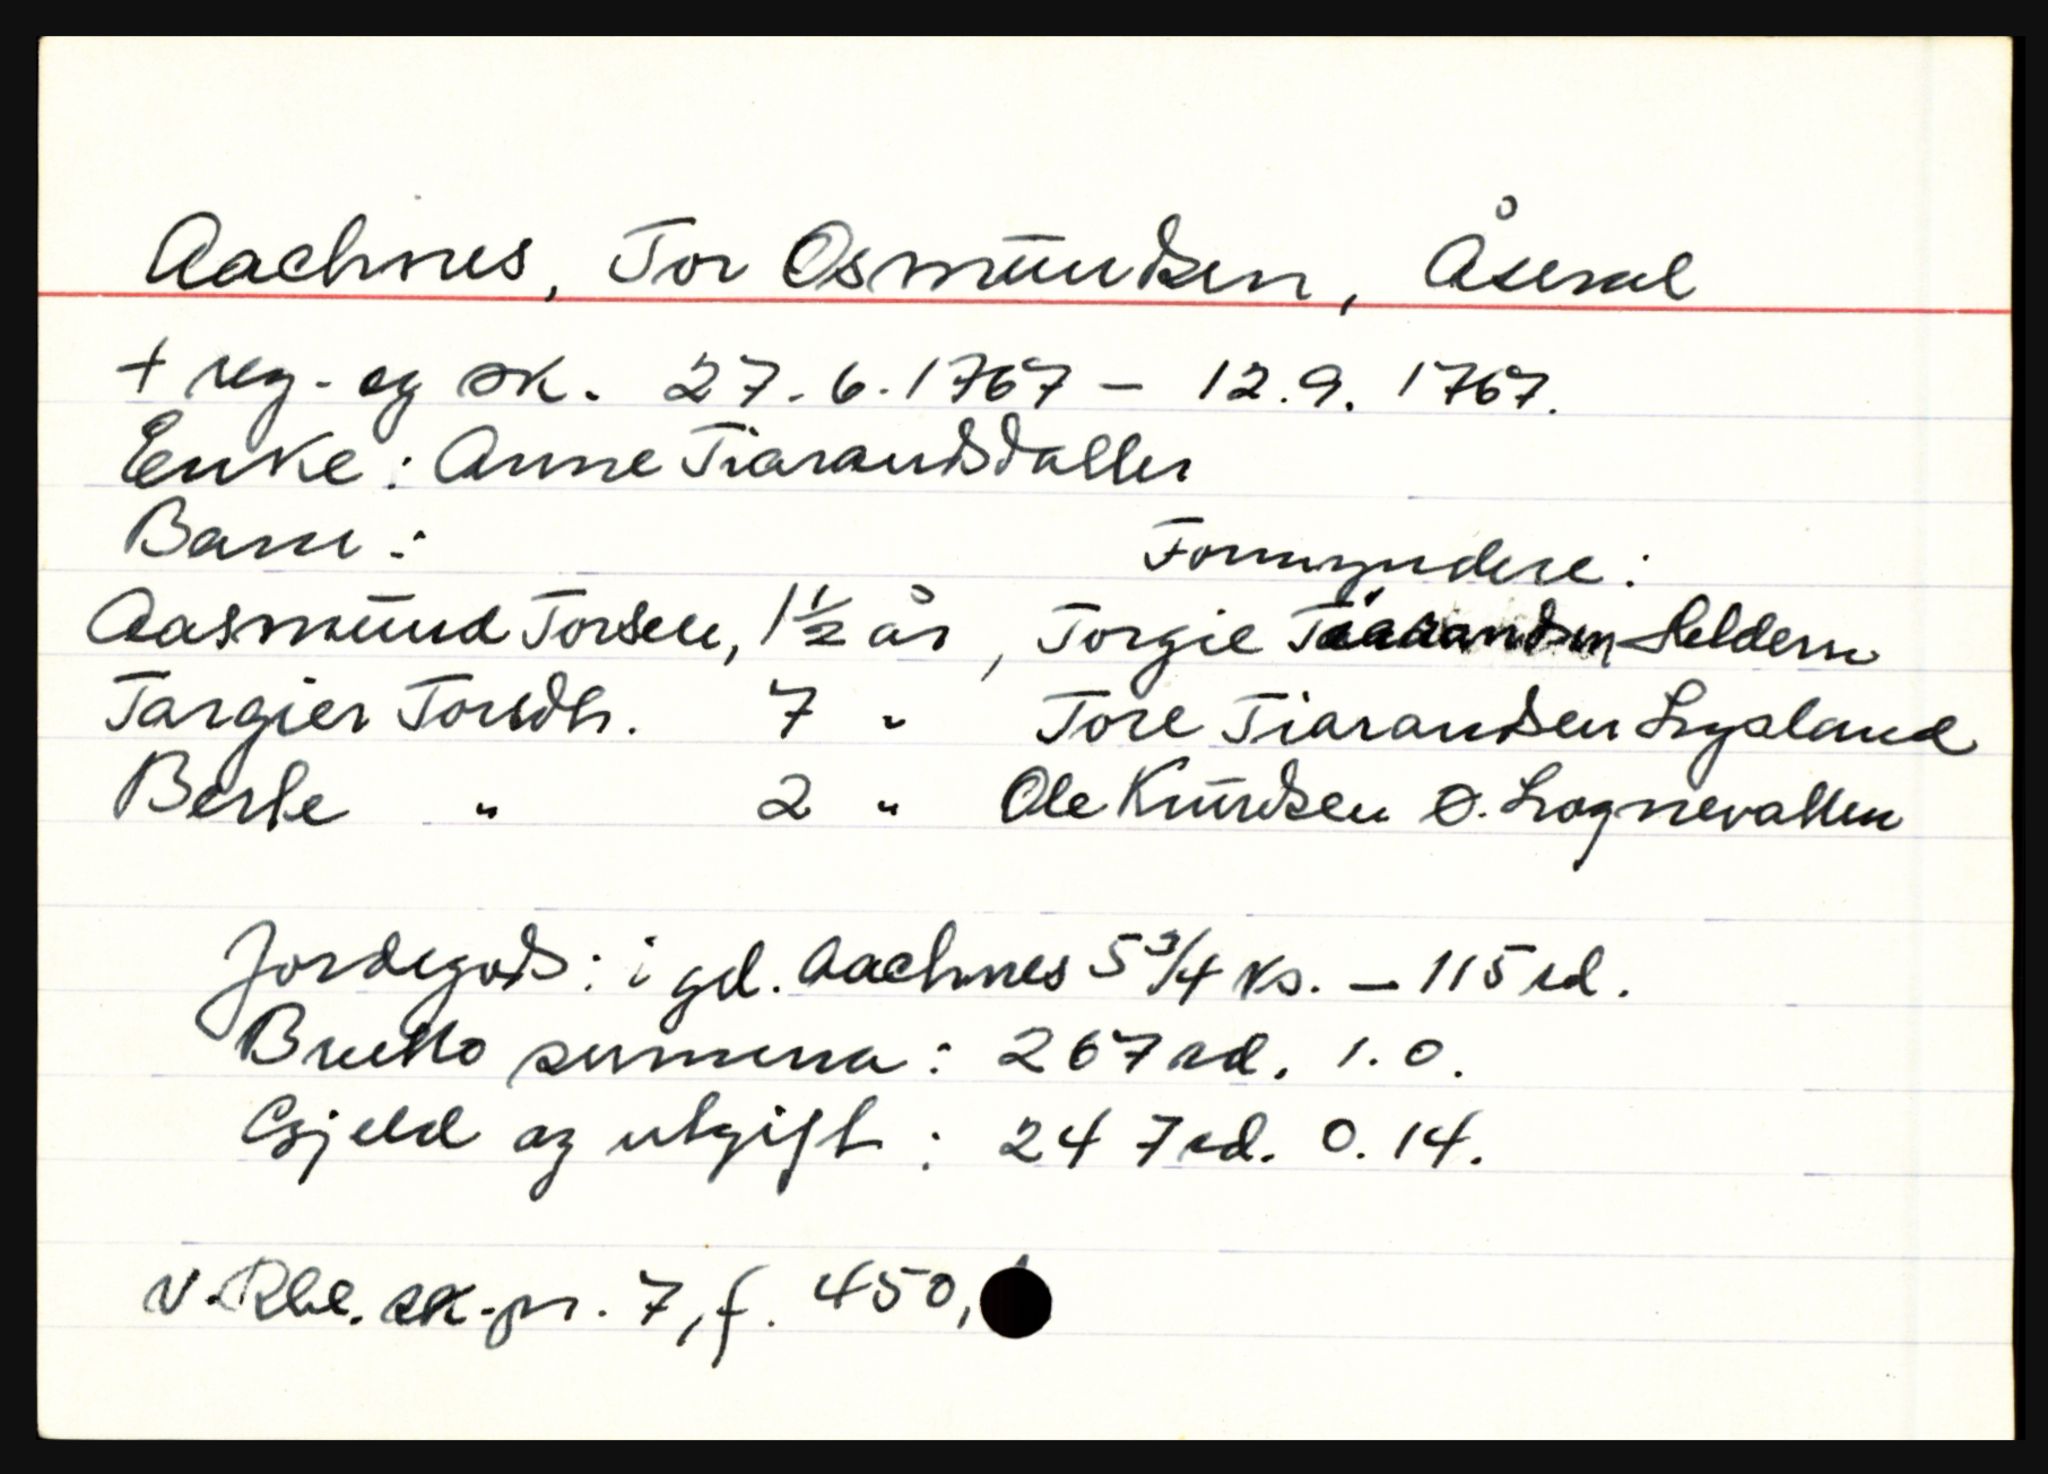 Aachnes, Tor Osmūndsen, Åseral
+ reg. og sk. 27.6.1767 - 12.9. 1767.
Enke: Anne Tiarandsdatter
Barn: Formyndere:
Aasmūnd Torsen, 1 1/2 år, Torgie Tiarandsen
Targier Torsdtr. 7 " Tore Tiarandsen Lysland
Berte " 2 " Ole Knūdsen Ø. Lognevatten
Jordegods: i gd. Aachnes 5 3/4 ks. - 115 rd.
Brutto summa: 267 rd. 1.0.
Gjeld og utgift: 247 rd. 0.14.
N. Rbl. sk.-pr. 7, f. 450,